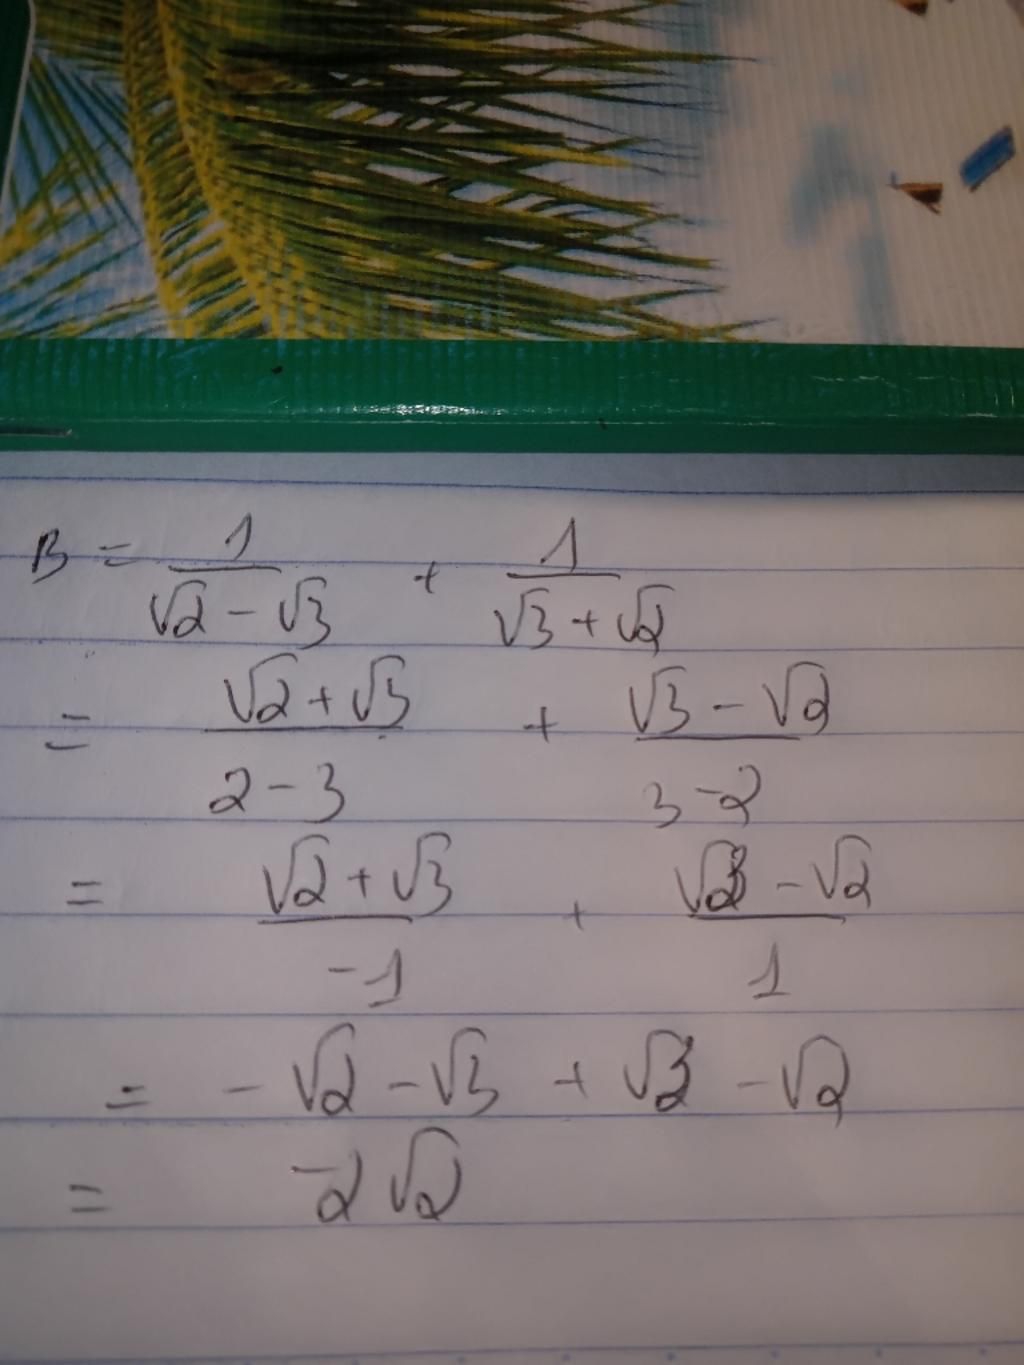 B = 1/(√2 - √3) + 1/(√3 + √2)
= (√2 + √3)/(2 - 3) + (√3 - √2)/(3 - 2)
= (√2 + √3)/(-1) + (√3 - √2)/1
= -√2 - √3 + √3 - √2
= -2√2